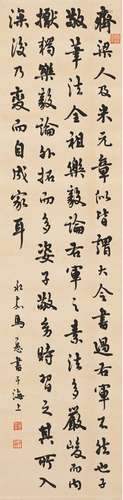 齊梁人及米元章以皆謂大令書過右軍不然也子
敬筆法全祖樂毅論右軍之素法多嚴峻而内
擫獨樂毅論外拓而多姿子敬時習之其所入
深後乃變而自成家耳
永嘉馬公愚書于海上